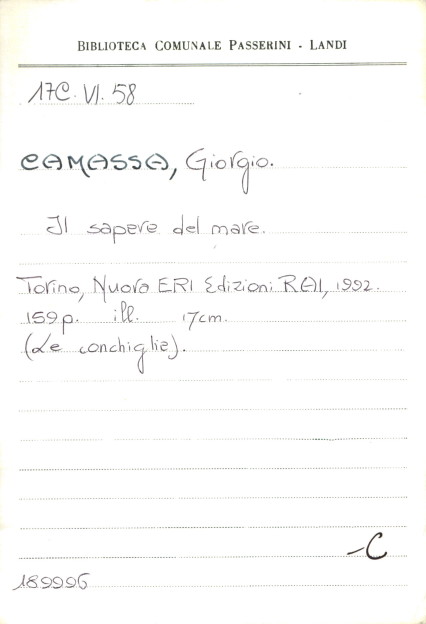 BIBLIOTECA COMUNALE PASSERINI - LANDI
17C. VI. 58
CAMASSA, Giorgio.
Il sapere del mare.
Torino, Nuova ERI Edizioni RAI, 1992.
159 p. ill. 17 cm.
(Le conchiglie).
-C
189996